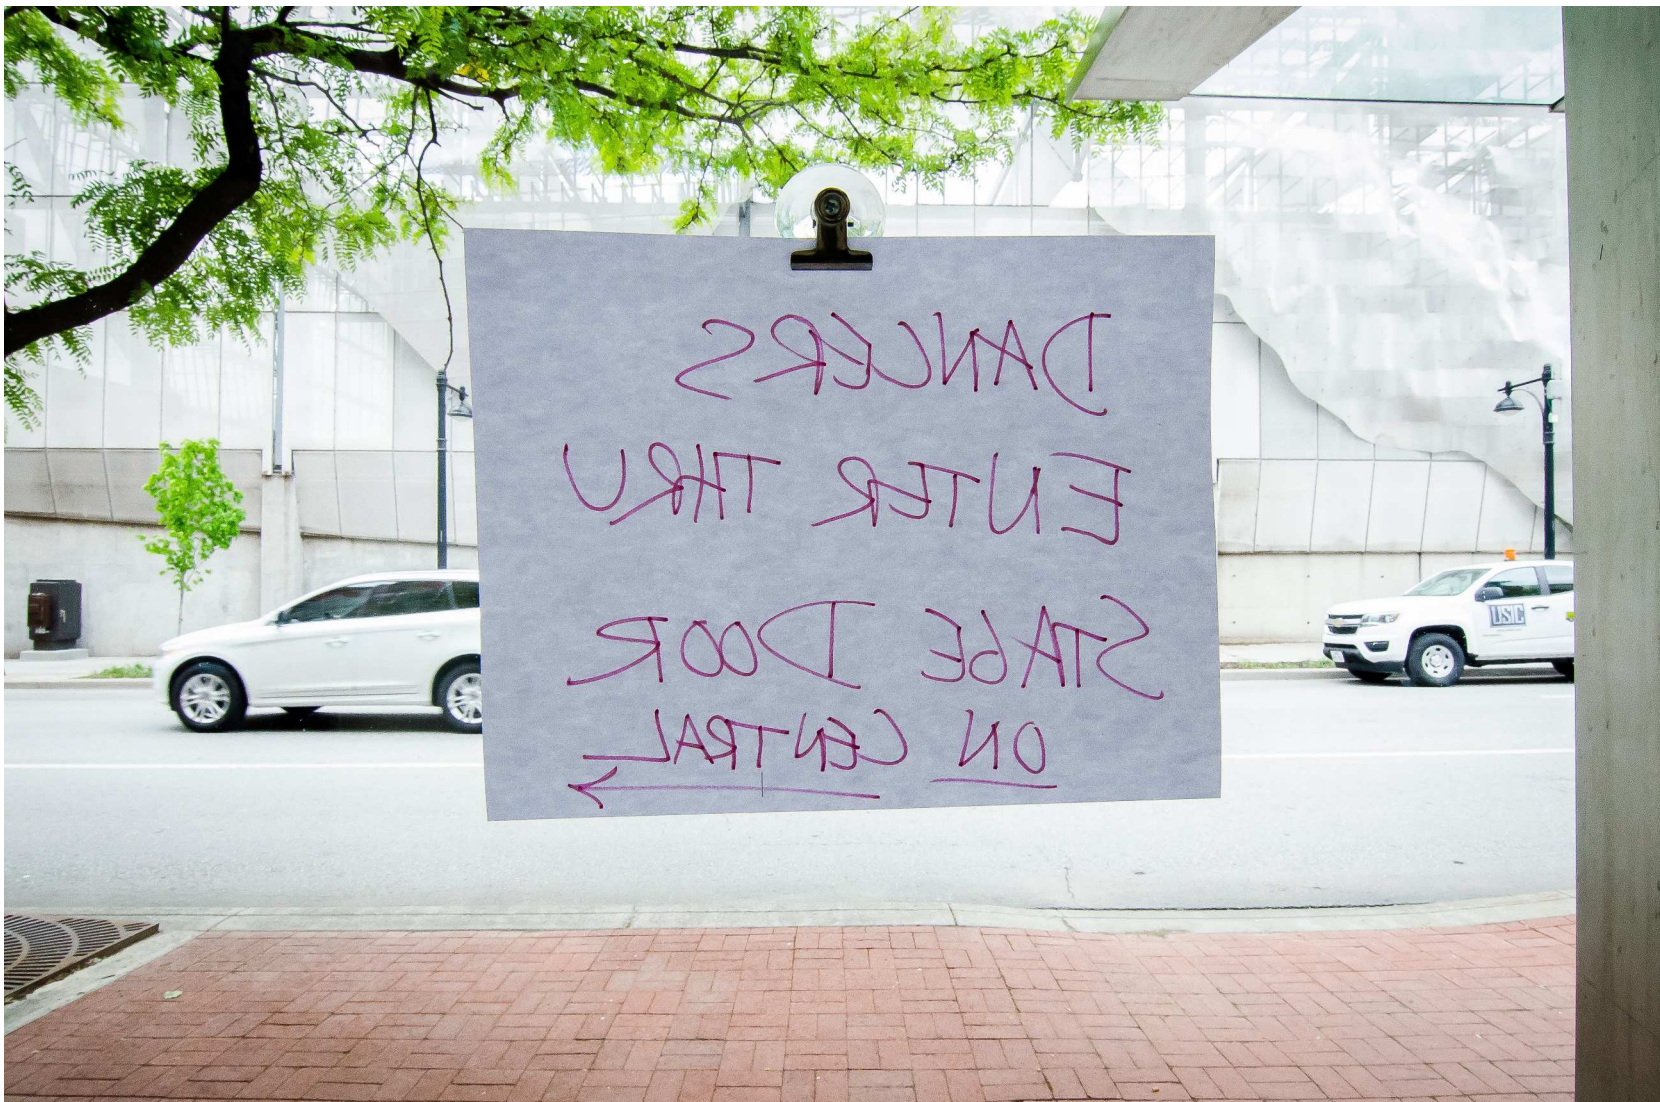 DANCERS
ENTER THRU
STAGE DOOR
ON CENTRAL